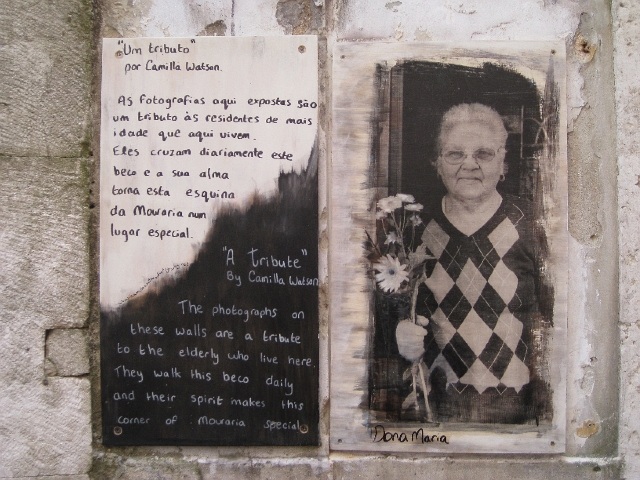 "Um tributo"
por Camilla Watson.
As fotografias aqui expostas são
um tributo às residentes de mais
idade que aqui vivem.
Eles cruzam diariamente este
beco e a sua alma
torna esta esquina
da Mouraria num
lugar especial.
"A tribute"
By Camilla Watson
The photographs on
these walls are a tribute
to the elderly who live here.
They walk this beco daily
and their spirit makes this
corner of Mouraria special.
Dona Maria